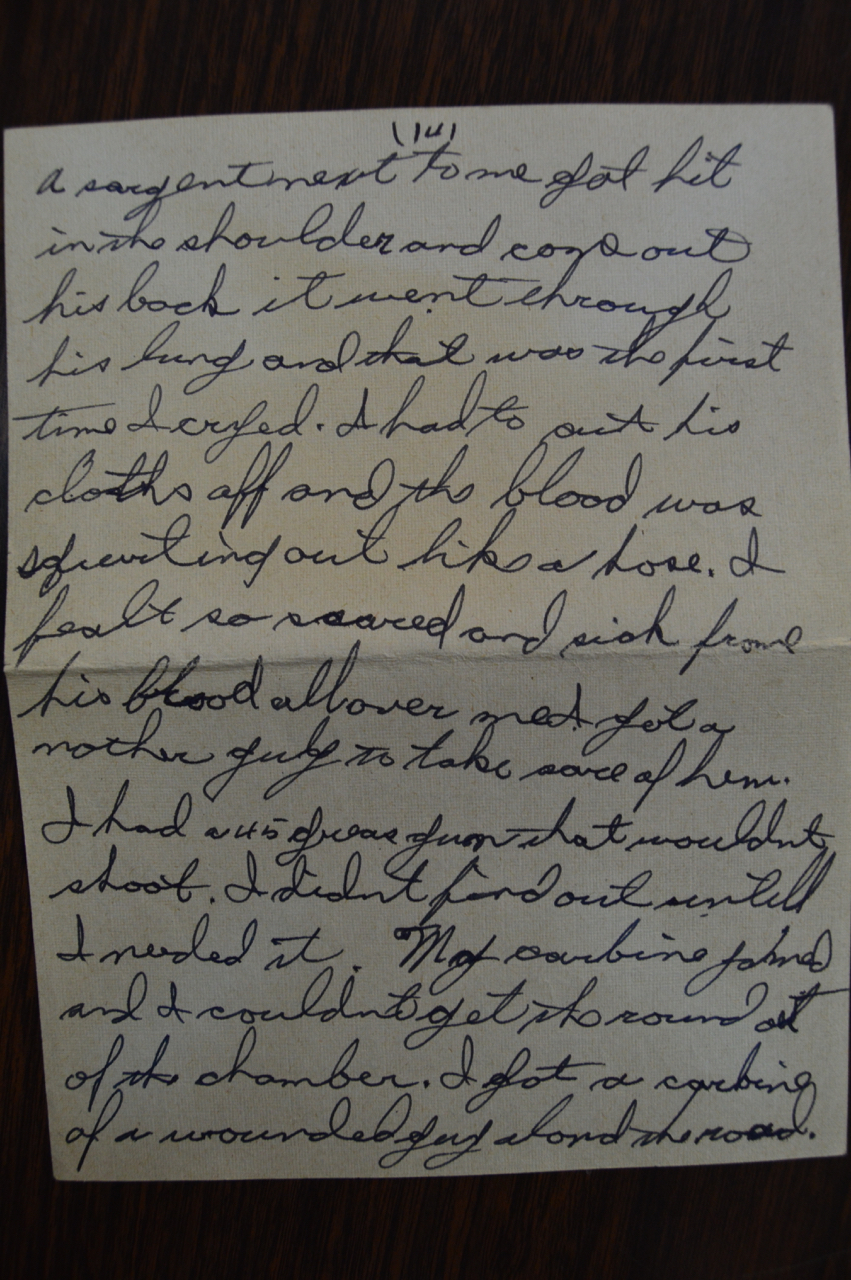 (14)
a sargent next to me got hit
in the shoulder and come out
his back it went through
his lung and that was the first
time I cryed. I had to cut his
cloths off and the blood was
squirting out like a hose. I
fealt so scared and sick frome
his blood all over me I got a
nother guly to take care of hem.
I had a 45 greas gun that wouldnt
shoot. I didnt find out untill
I needed it. My carbine jamed
and I couldnt get the round out
of the chamber. I got a carbine
of a wounded guy alond the road.